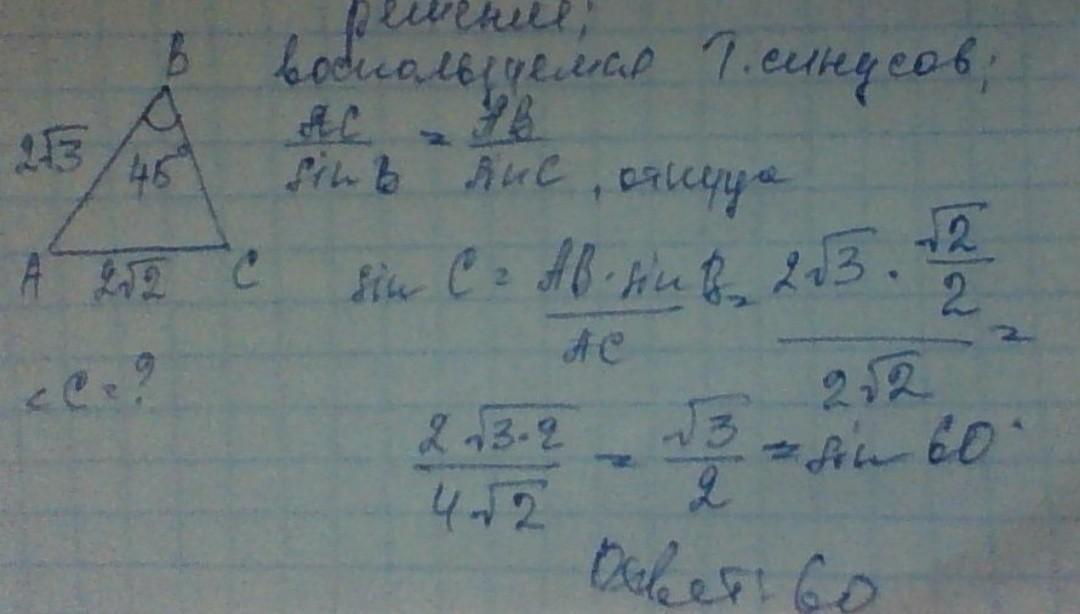 решение;
B воспользуемся Т.синусов;
2√3 45° AC/sin B = AB/sin C, откуда
A 2√2 C sin C = AB·sin B/AC = 2√3·√2/2/2√2 =
<C=?
2√3·2/4√2 = √3/2 = sin 60°
Ответ: 60